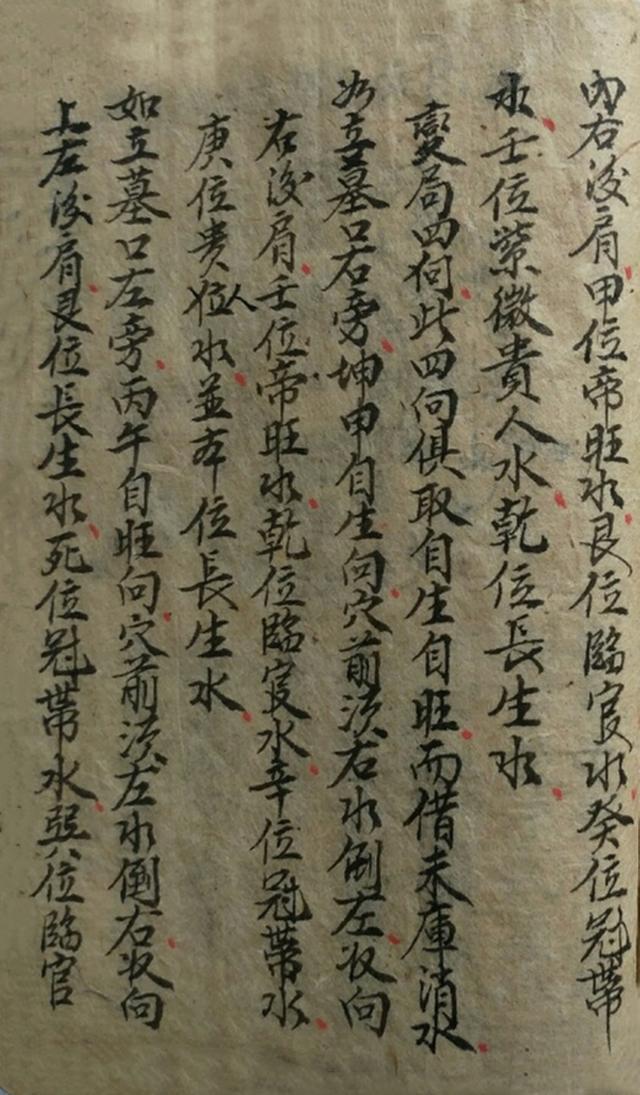 內右後肩甲位帝旺水艮位臨官水癸位冠帶
水壬位紫微貴人水乾位長生水
變局四向此四向俱取自生自旺而借未庫消水
如立墓口右旁坤申自生向穴前须右水倒左收向
右後肩壬位帝旺水乾位臨官水辛位冠帶水
庚位貴人位水並本位長生水
如立墓口左旁丙午自旺向穴前须左水倒右收向
上左後肩艮位長生水死位冠帶水巽位臨官